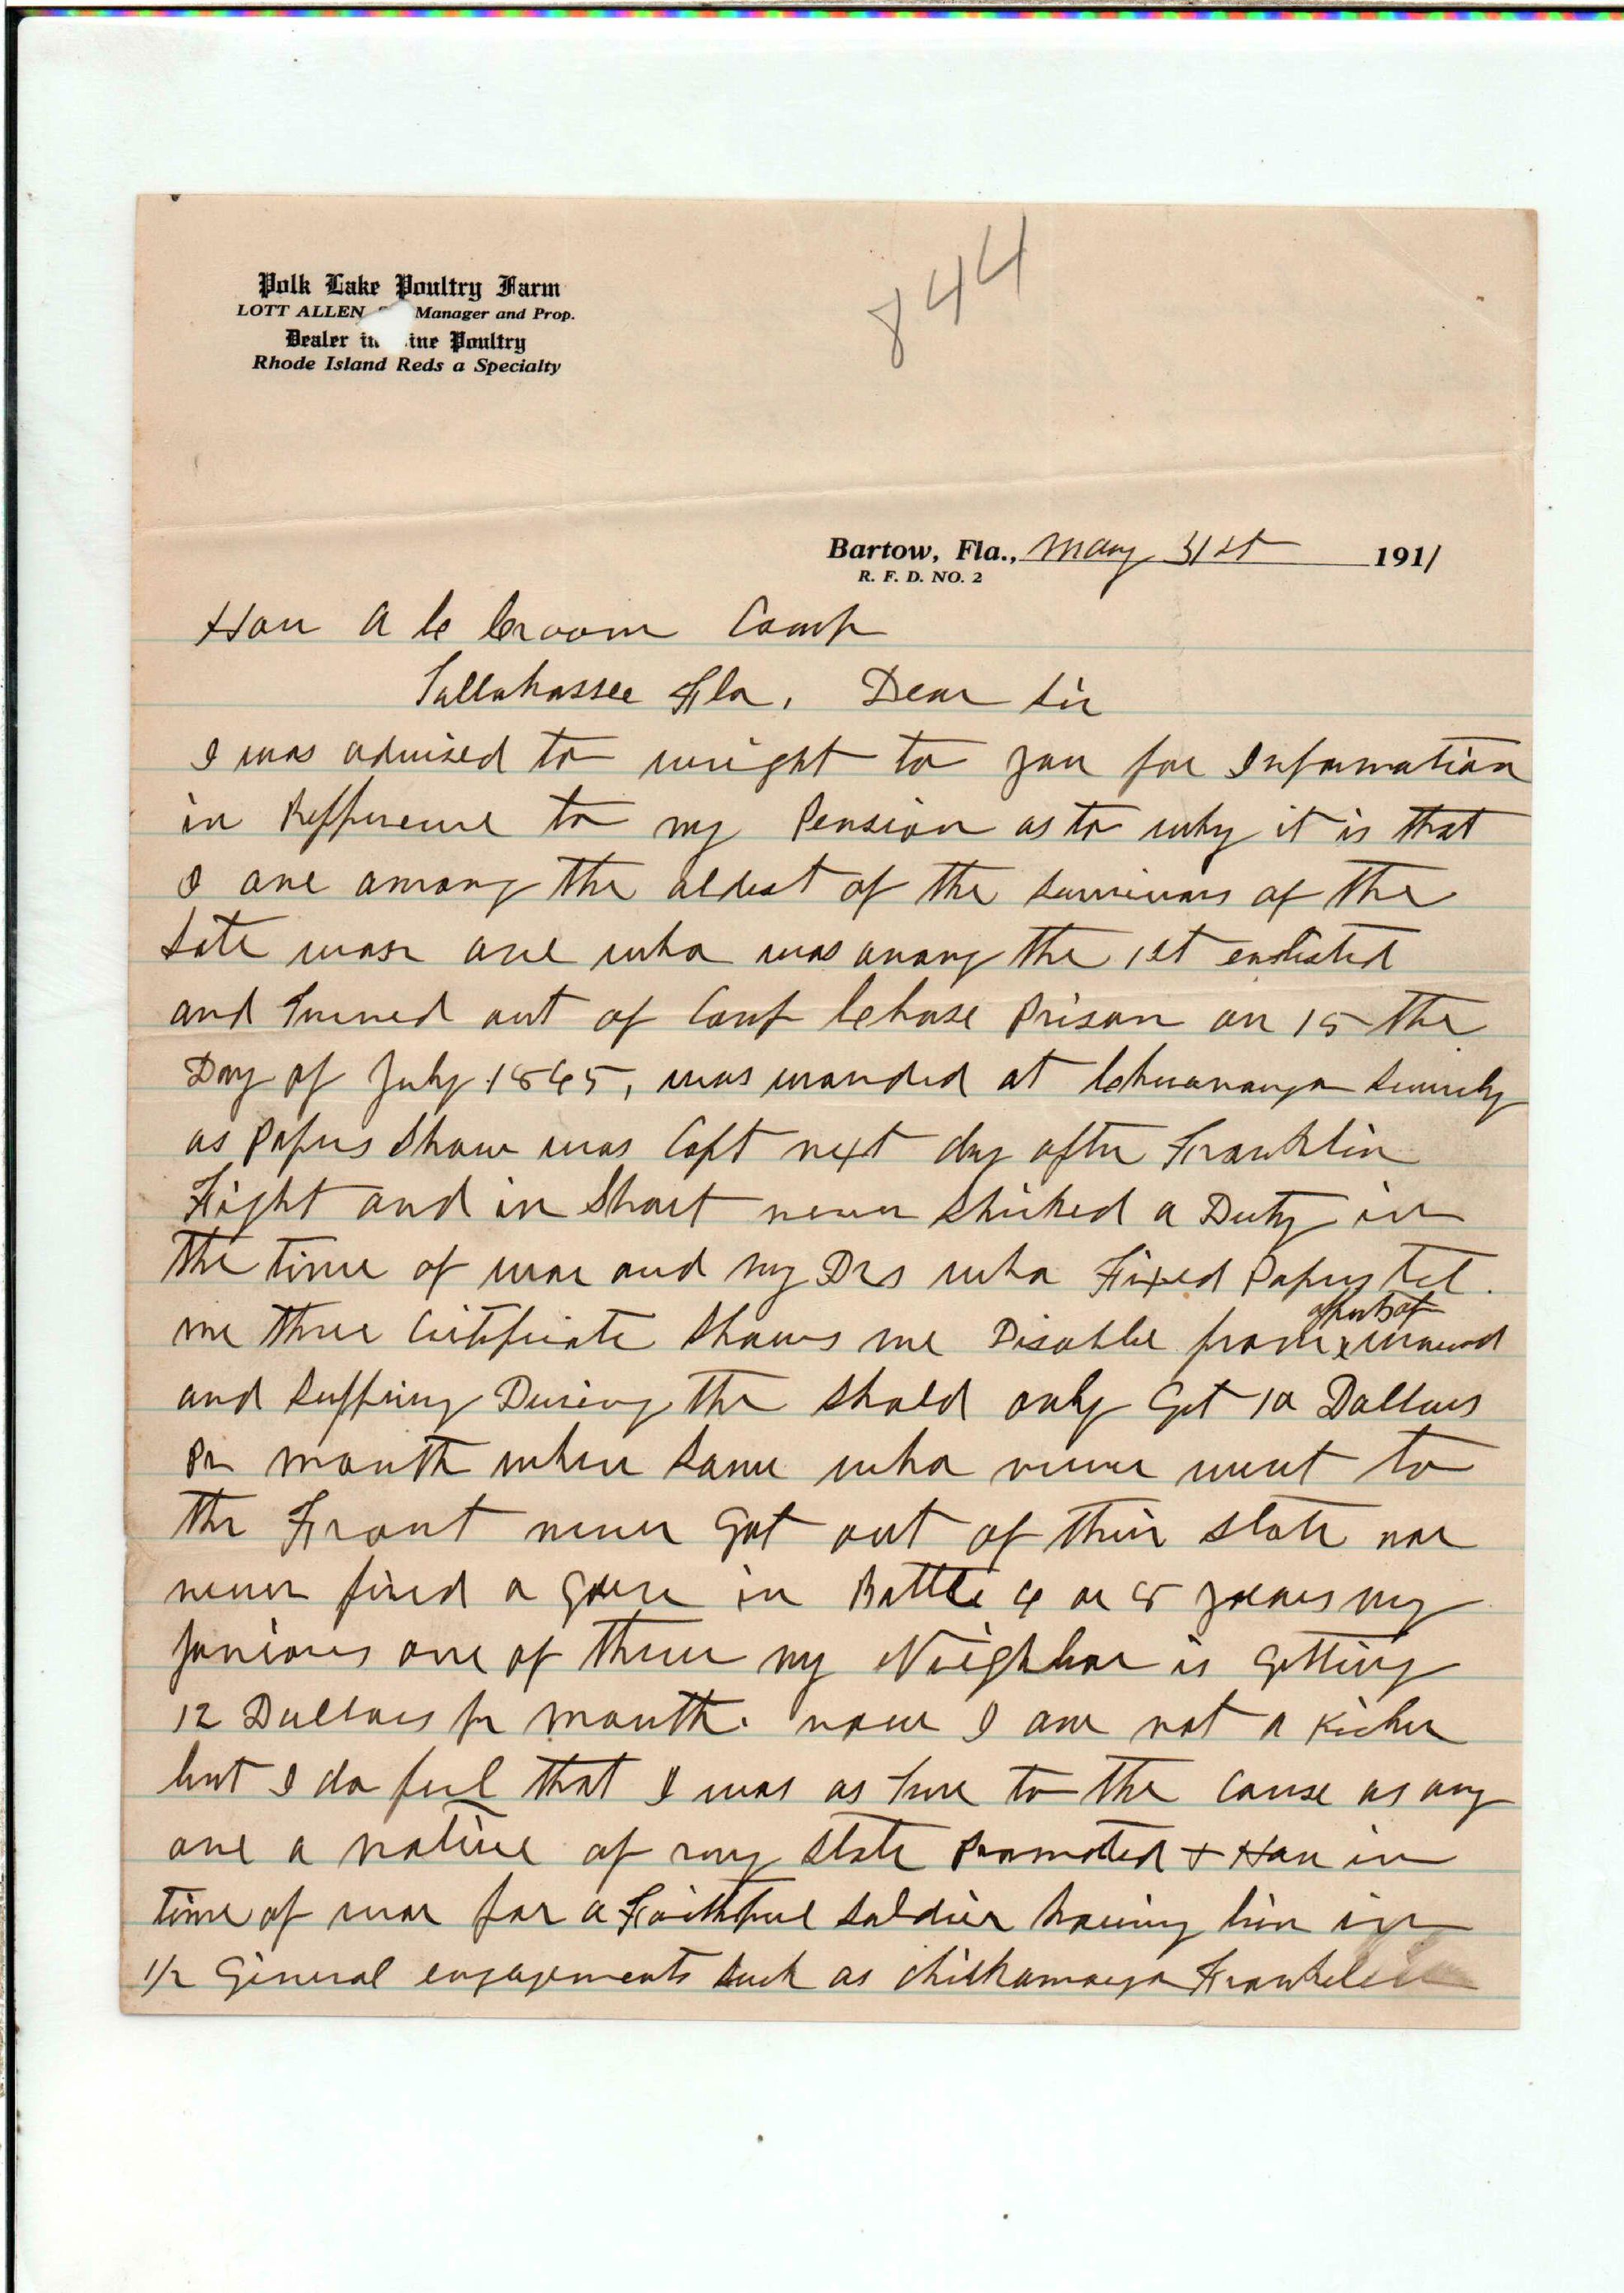 844
Polk Lake Poultry Farm
LOTT ALLEN Manager and Prop.
Dealer in ine Poultry
Rhode Island Reds a Specialty
Bartow, Fla., May 31st 1911
R. F. D. NO. 2
Hon A C Croom Comp
Tallahassee Fla. Dear Sir
I was advised to wright to you for Information
in Refference to my Pension as to why it is that
I one among the oldest of the survivors of the
Late war one who was among the 1st enlisted
and turned out of Camp Chase Prison on 15 the
Day of July 1865, was wounded at
as Papers Show was Capt next day after Franklin
Fight and in Short never Shirked a Duty in
the time of war and my Drs who Fixed Papers tel
me there Certificate Shows me Disable from effects of wound
and Suffring During the Shold only Get 10 Dollars
Pr month when Some who never went to
the Front never Got out of their state nor
never fired a Gun in Battle 4 or 5 years my
juniors one of them my Neighbor is Getting
12 Dollars pr month. now I am not a Kicker
but I do feel that I was as true to the Cause as any
one a native of my state Promoted + Hon in
time of war for a Faithful Soldier having bin in
1/2 General engagements such as Chickamauga Franklin